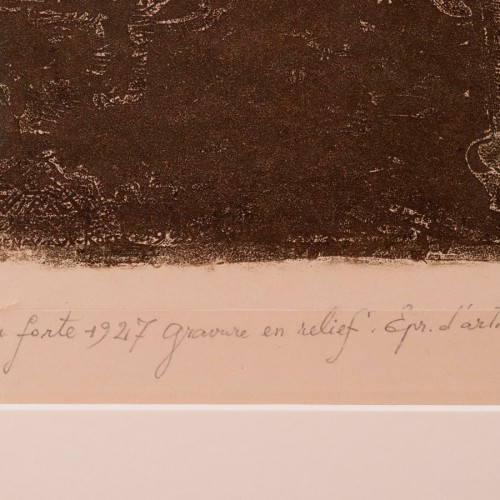 forte 1927 gravure en relief. Épr. d'art